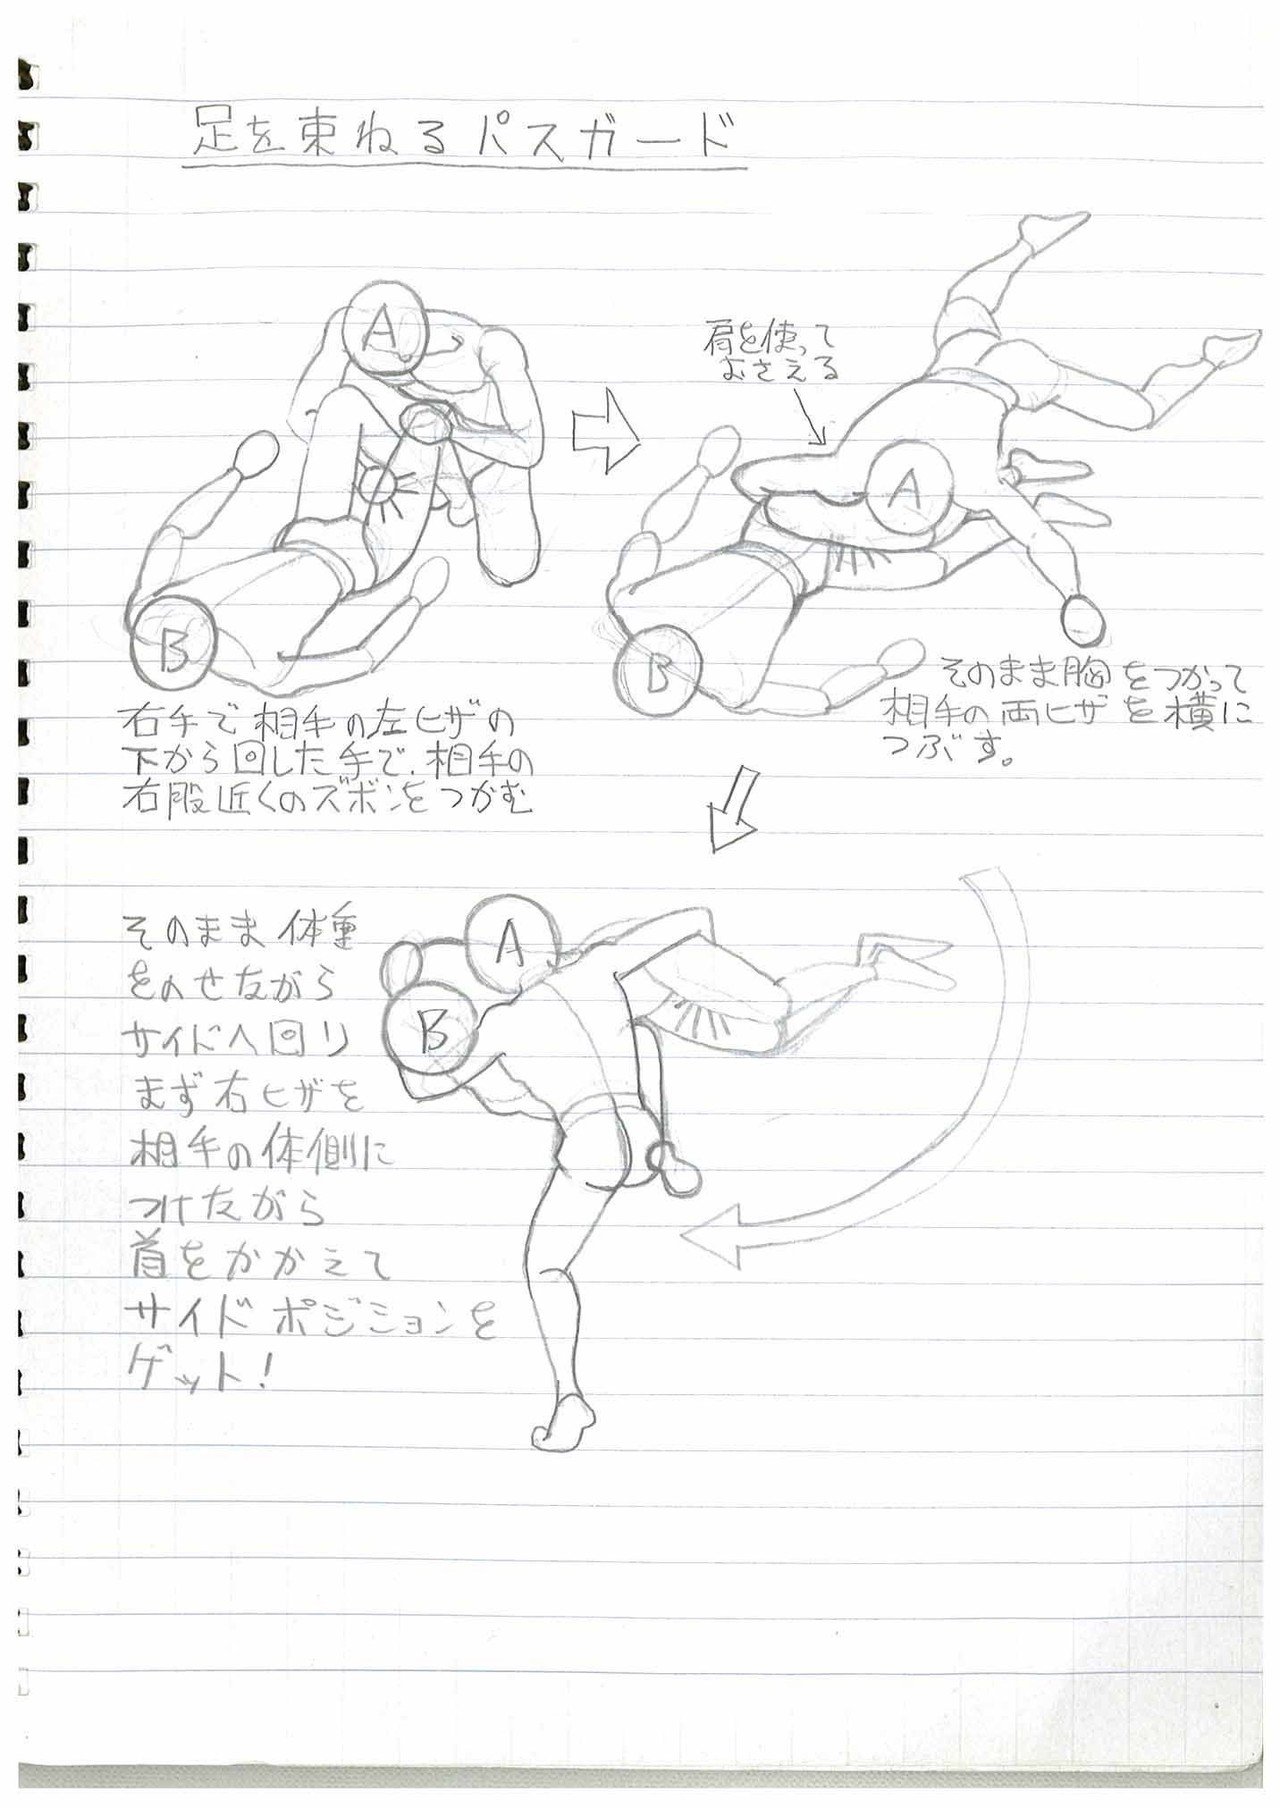 足を束ねるパスガード
A
B
右手で相手の左ヒザの
下から回した手で、相手の
右股近くのズボンをつかむ
肩を使って
おさえる
A
B
そのまま胸をつかって
相手の両ヒザを横に
つぶす。
A
B
そのまま体重
をのせながら
サイドへ回り
まず右ヒザを
相手の体側に
つけながら
首をかかえて
サイドポジションを
ゲット!